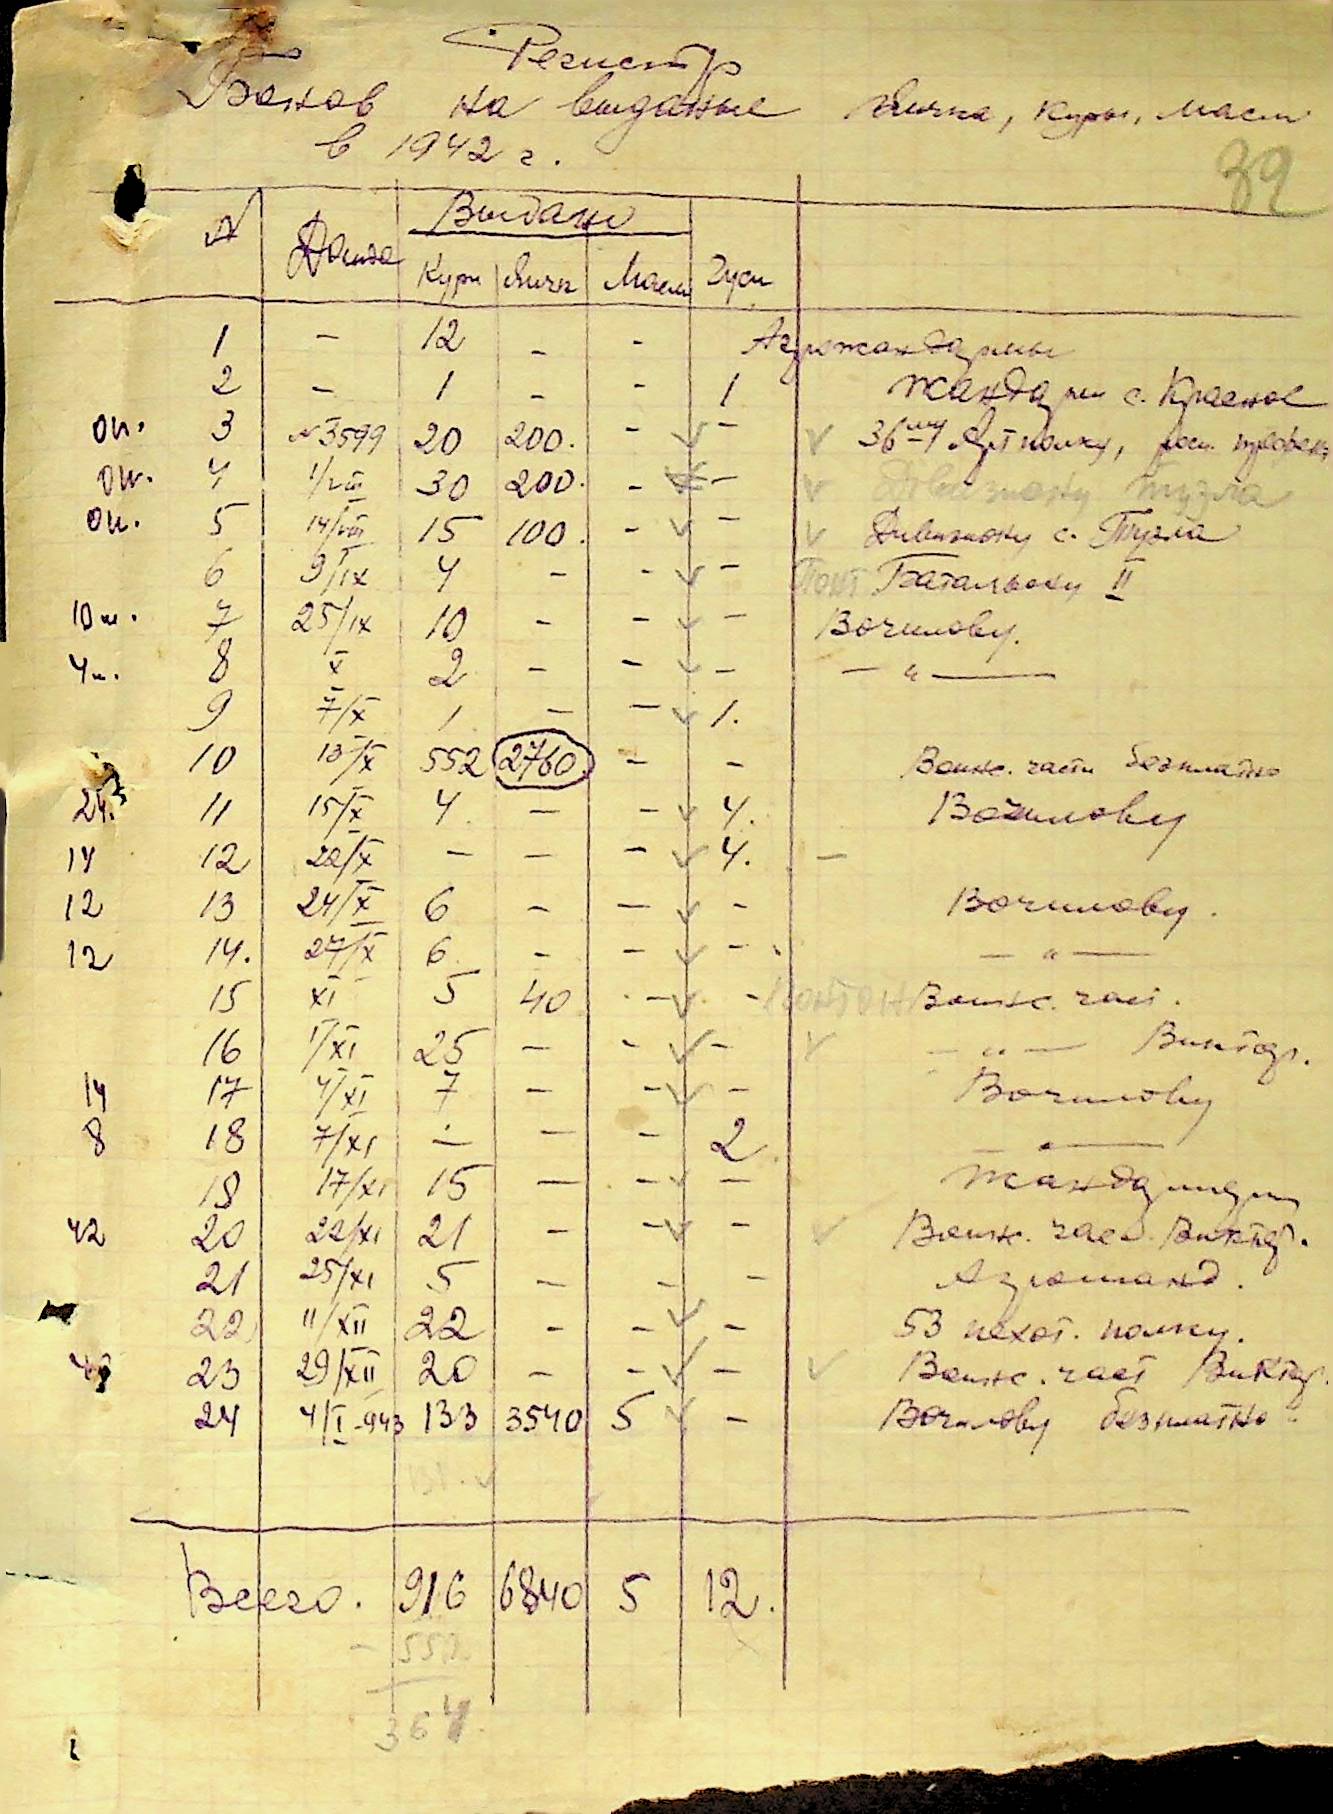 Регистр
Бонов на выданые яички, куры, масло
в 1942 г.
39
N Дата Выдано
Куры Яички Масло Гуси
1 – 12 – – Агрожандармы
2 – 1 – – 1 Жандарм с. Красное
он. 3 №3599 20 200. – – 36му Артполку,
он. 4 1/VIII 30 200. – – Дивизиону Тузла
он. 5 14/VIII 15 100. – – Дивизиону с. Тузла
6 9/IX 4 – – – Батальону II
10 ш. 7 25/IX 10 – – – Вочилову.
4 ш. 8 X 2 – – – – " –
9 7/X 1 – – 1.
10 13/X 552 2760 – – Воинс. части безплатно
24. 11 15/X 4 – – 4. Вочилову
14 12 20/X – – – 4. –
12 13 24/X 6 – – – Вочилову.
12 14. 27/X 6 – – – – " –
15 XI 5 40 – – Воинс. част.
16 1/XI 25 – – – – " – Виктор.
14 17 4/XI 7 – – – Вочилову
8 18 7/XI – – – 2 – " –
19 17/XI 15 – – – Жандармерии
42 20 22/XI 21 – – – Воинс. част. Виктор.
21 25/XI 5 – – – Агрожанд.
22 11/XII 22 – – – 53 пехот. полку.
23 29/XII 20 – – – Воинс. част Виктор.
24 4/I-943 133 3540 5 – Вочилову безплатно
131.
Всего. 916 6840 5 12.
– 552
364